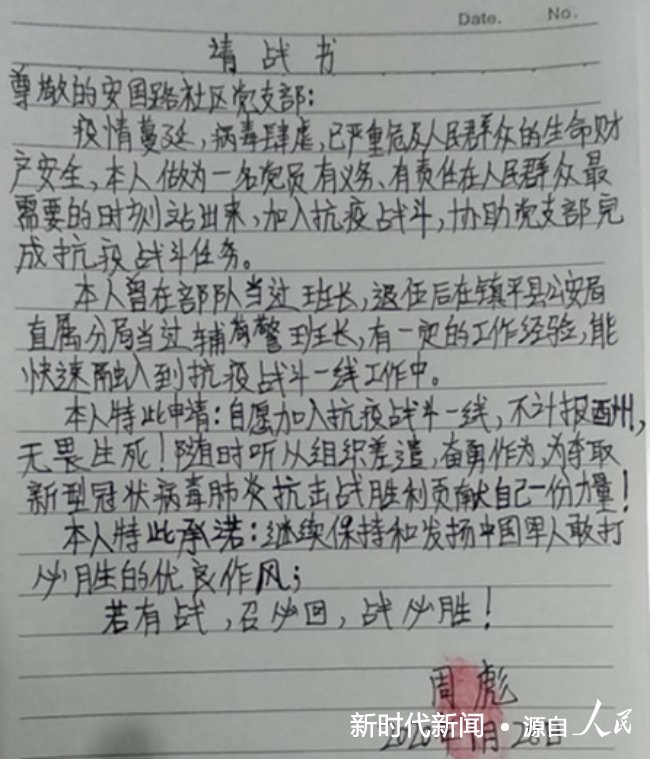 Date. No.
请战书
尊敬的安国路社区党支部:
疫情蔓延,病毒肆虐,已严重危及人民群众的生命财
产安全,本人做为一名党员有义务、有责任在人民群众最
需要的时刻站出来,加入抗疫战斗,协助党支部完
成抗疫战斗任务。
本人曾在部队当过班长,退伍后在镇平县公安局
直属分局当过辅警班长,有一定的工作经验,能
快速融入到抗疫战斗一线工作中。
本人特此申请:自愿加入抗疫战斗一线,不计报酬,
无畏生死!随时听从组织差遣,奋勇作为,为夺取
新型冠状病毒肺炎抗击战胜利贡献自己一份力量!
本人特此承诺:继续保持和发扬中国军人敢打
必胜的优良作风;
若有战,召必回,战必胜!
周彪
新时代新闻·源自人民
2020年1月28日